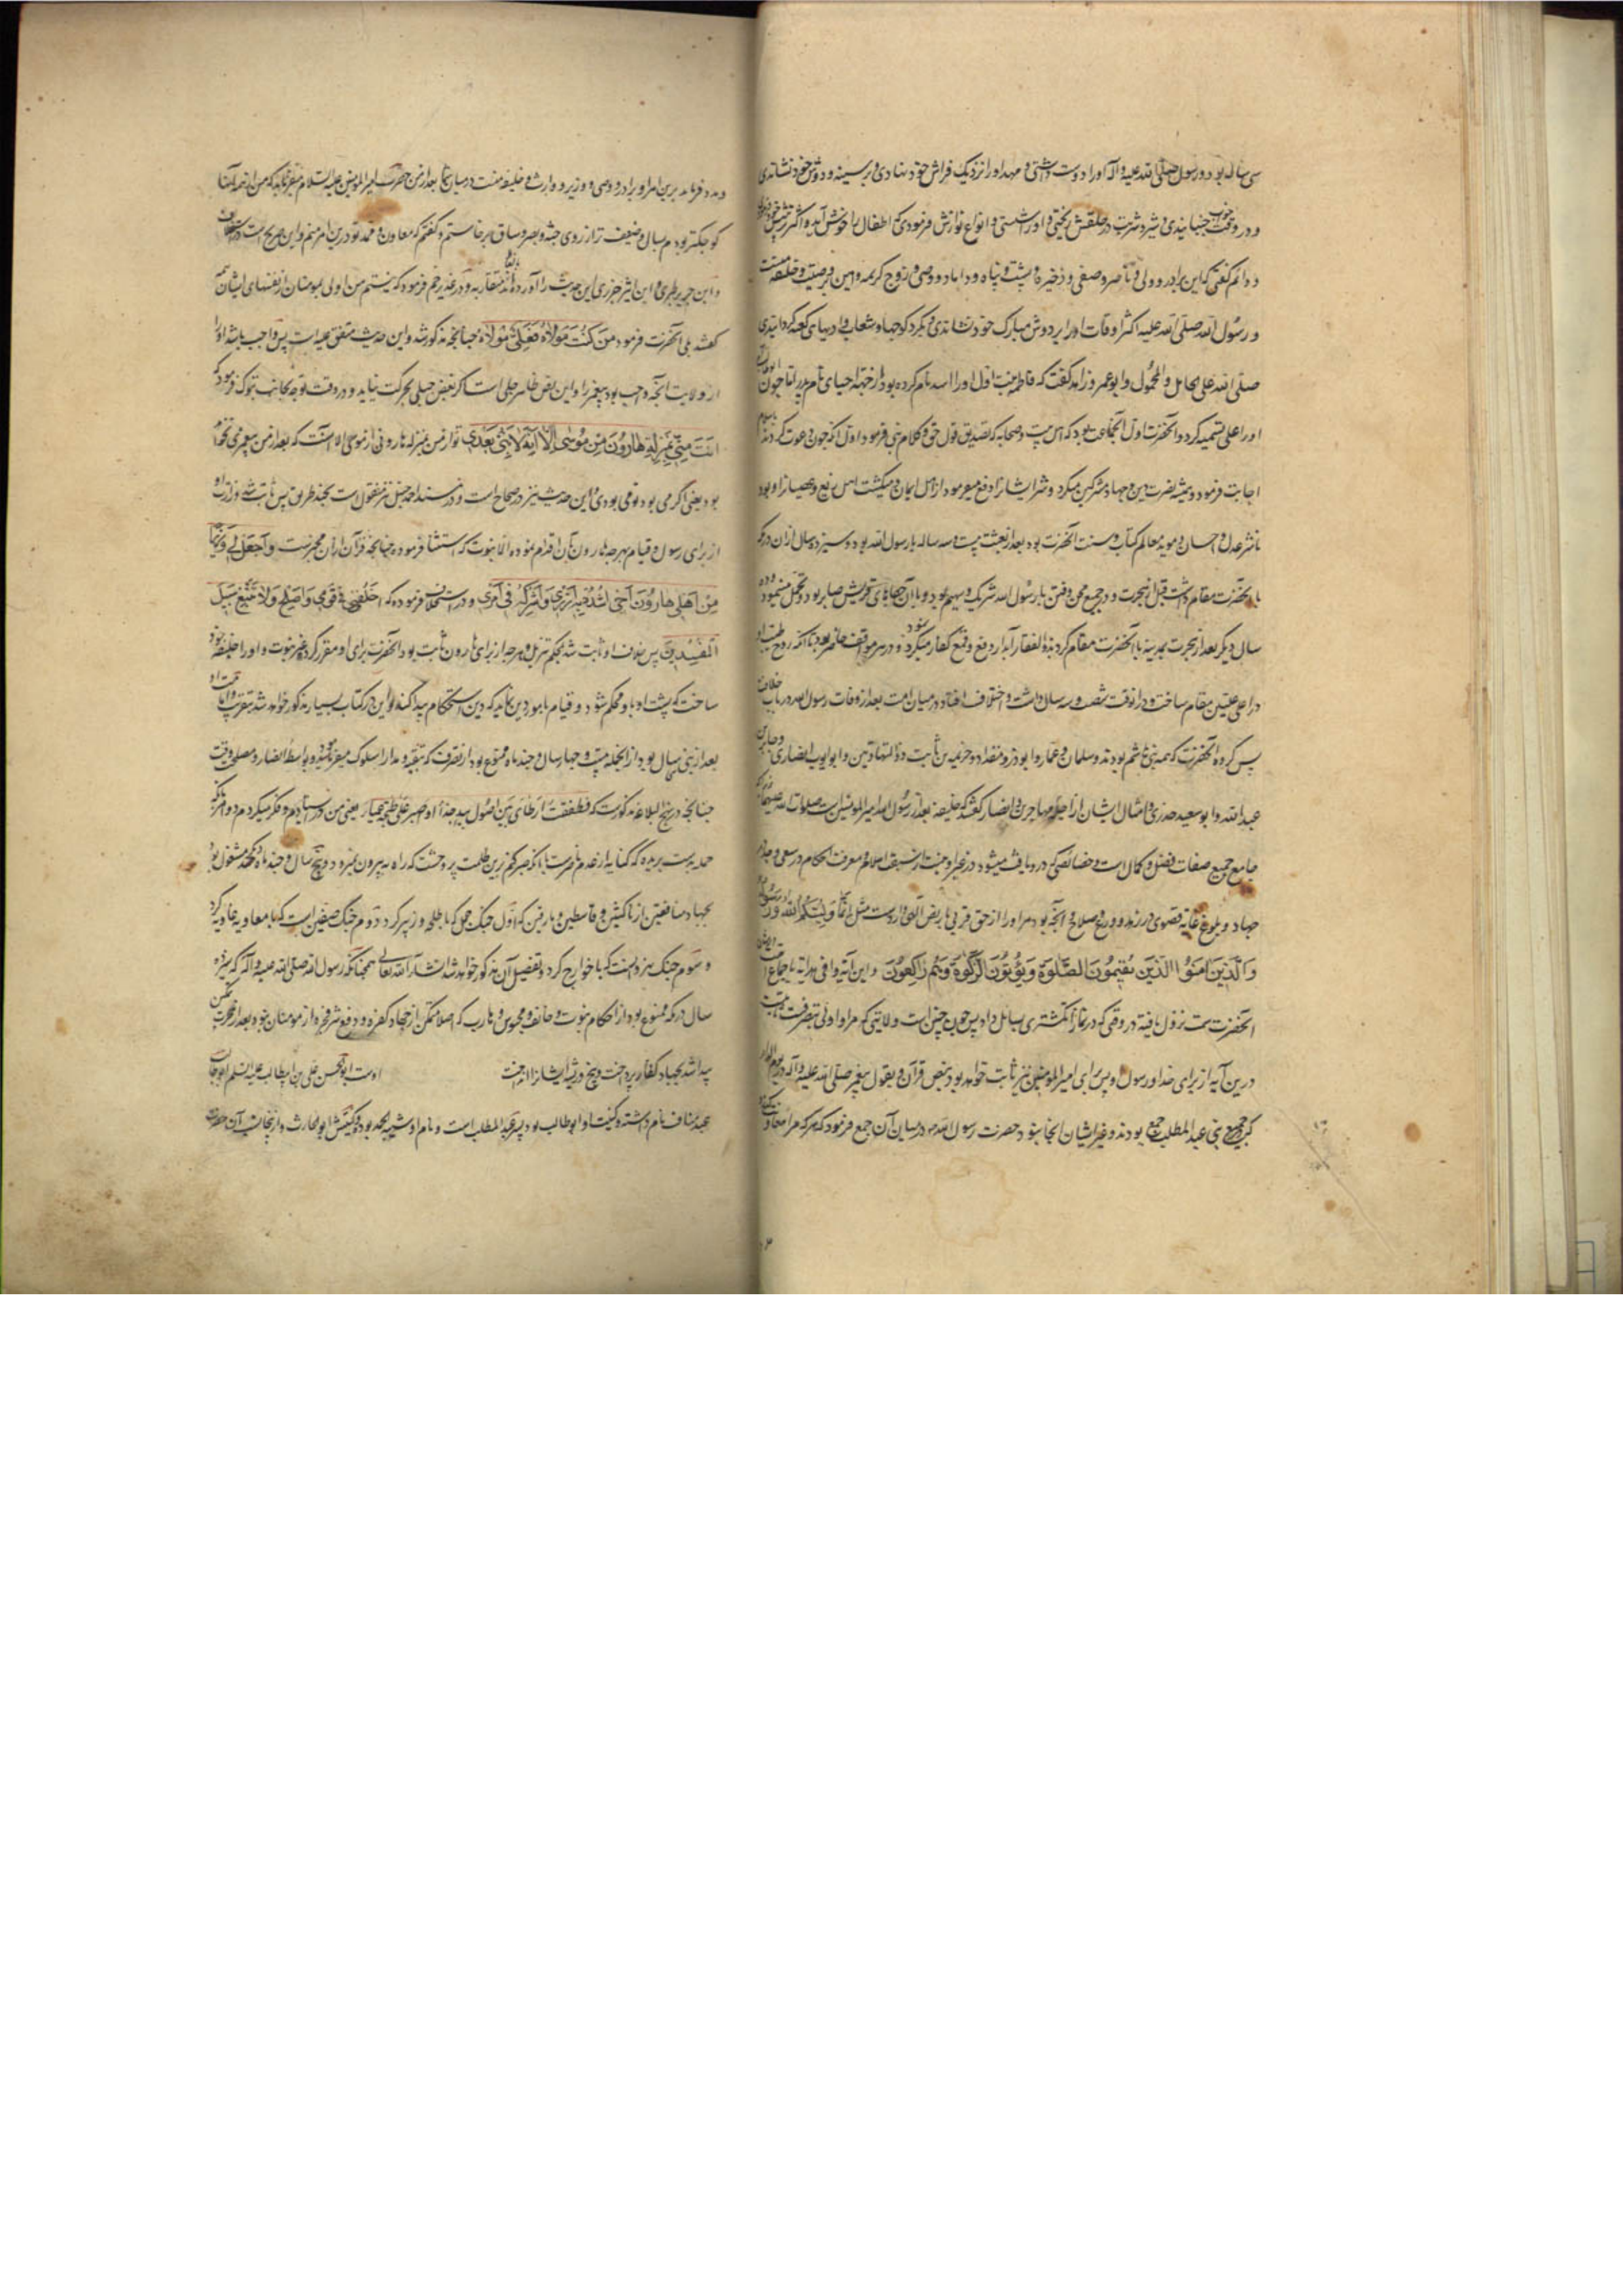 سی ساله بود و رسول صلی الله علیه و آله او را دوست داشتی و مهد او را نزدیک فراش خود نهادی و بر سینه و دوش خود نشاندی
و در وقت خواب جنبانیدی و شیر و شربت در حلقش ریختی و او را شستی و انواع نوازش فرمودی که اطفال را خوش آید و اکثر
و دائم گفتی که این برادر و ولی و ناصر و صفی و ذخیره و پشت و پناه و داماد و وصی و زوج کریمه و امین بر وصیت و خلیفه منست
و رسول الله صلی الله علیه اکثر اوقات او را بر دوش مبارک خود نشاندی و بگرد کوهها و شعاب و ادیهای کعبه گردانیدی
صلی الله علی الحامل و المحمول و ابو عمرو زاهد گفت که فاطمه بنت اول او را اسد نام کرده بود از جهة احیای نام پدر اما چون ابوطالب
او را علی تسمیه کرد و آنحضرت اول آن جماعت بود که اهل بیت و صحابه که تصدیق قول حق و کلام نبی فرمود اول آنکه چون دعوت کردند
اجابت فرمود و همیشه نصرت دین و جهاد مشرکین میکرد و شر ایشان را دفع میفرمود از اهل ایمان و میکشت اهل زیغ و عصیان را و بود
ناشر عدل و احسان و موید معالم کتاب و سنت آنحضرت بود بعد از بعثت بیست و سه ساله با رسول الله بود و سیزده سال از آن در مکه
با آنحضرت مقام داشت قبل از هجرت و در جمیع محن و فتن با رسول الله شریک و سهیم بود و با آن جفاهای قریش صابر بود و تحمل مینمود و ده
سال دیگر بعد از هجرت بمدینه با آنحضرت مقام کرد بذو الفقار آبدار دفع و قمع کفار میکرد و در هر موقف حاضر بود تا آنکه روح طیب او
در اعلی علیین مقام ساخت و در آنوقت شصت و سه سال داشت و اختلاف افتاد در میان امت بعد از وفات رسول الله در باب خلافت
پس گروه آنحضرت که همه بنی هاشم بودند و سلمان و عمار و ابوذر و مقداد و خزیمه بن ثابت ذو الشهادتین و ابو ایوب انصاری و جابر بن
عبدالله و ابو سعید خدری و امثال ایشان از اجله مهاجرین و انصار گفتند که خلیفه بعد از رسول الله امیر المومنین است صلوات الله علیهما
جامع جمیع صفات فضل و کمال است و خصائصی که در و یافت میشود در غیر او نیست از سبق اسلام و معرفت احکام و سعی و جد در
جهاد و بلوغ غایة قصوی در زهد و ورع و صلاح و آنچه بود مر او را از حق قربی با نص الهی وارد است مثل انما ولیکم الله ورسوله
والذین امنوا الذین یقیمون الصلوة ویؤتون الزکوة وهم راکعون و این آیه وافی هدایه باجماع امت در شان
آنحضرت سمت نزول یافته در وقتی که در نماز انگشتری بسائل داد پس چون چنین است ولایتی که مر او اولی بتصرف
درین آیه از برای خدا و رسول او پس برای امیر المومنین نیز ثابت خواهد بود بنص قرآن و بقول پیغمبر صلی الله علیه و آله در یوم الدار
که جمیع بنی عبد المطلب جمع بودند و غیر ایشان آنجا نبود حضرت رسول الله در میان آن جمع فرمود که هر که مرا معاونت کند
و مدد فرماید برین امر او برادر و وصی و وزیر و وارث و خلیفه منست در میان شما بعد از من حضرت امیر المومنین علیه السلام میفرماید که من از همه آنها
کوچکتر بودم بسال و ضعیف تر از روی جثه و بصر و ساق برخاستم و گفتم که معاون و ممد تو درین امر منم و این صریح است در استخلاف
و ابن جریر طبری و ابن اثیر جزری این حدیث را آورده‌اند متقاربه و در غدیر خم فرمود که نیستم من اولی بمومنان از نفسهای ایشان
گفتند بلی آنحضرت فرمود من کنت مولاه فعلی مولاه چنانچه مذکور شد و این حدیث متفق علیه است پس واجب باشد او را
از ولایت آنچه واجب بود پیغمبر را و این نص ظاهر جلی است اگر بغض جبلی بحرکت نیاید و در وقت توجه بجانب تبوک فرمود که
انت منی بمنزلة هارون من موسی الا انه لا نبی بعدی تو از من بمنزله هارونی از موسی الا آنست که بعد از من پیغمبری نخواهد
بود یعنی اگر می بود تو می بودی و این حدیث نیز در صحاح است و در مسند احمد حنبل نیز منقول است بچند طریق پس ثابت شد وزارت او
از برای رسول و قیام بهر چه هارون بآن اقدام نموده الا نبوت که استثنا فرموده چنانچه قرآن از آن مخبرست واجعل لی وزیرا
من اهلی هارون اخی اشدد به ازری واشرکه فی امری و در استخلاف فرموده که اخلفنی فی قومی واصلح ولا تتبع سبیل
المفسدین پس خلافت او ثابت شد بحکم تنزیل و هر چه از برای هارون ثابت بود آنحضرت برای او مقرر کرد غیر نبوت و او را خلیفه خود
ساخت که پشت او باو محکم شود و قیام بامور دین نماید که دین استحکام پیدا کند و این در کتاب بسیار مذکور خواهد شد بتقریب
بعد از نبی سی سال بود از آنجمله بیست و چهار سال و چند ماه ممنوع بود از تصرف که بتقیه و مدارا سلوک میفرمود بواسطه انصار و مصلحت وقت
چنانچه در نهج البلاغه مذکورست که فطفقت ارتای بین ان اصول بید جذاء او اصبر علی طخیة عمیاء یعنی من در ایستادم و فکر میکردم در آنکه
حمله بدست بریده که کنایه از عدم نصرت یا آنکه صبر کنم برین ظلمت پر وحشت که راه به بیرون نمیبرد و پنج سال و چند ماه دیگر ممتحن مشغول بود
بجهاد منافقین از ناکثین و قاسطین و مارقین که اول جنگ جمل که با طلحه و زبیر کرد دوم جنگ صفین است که با معاویه غاویه کرد
و سوم جنگ نهروانست که با خوارج کرد و تفصیل آن مذکور خواهد شد انشاء الله تعالی همچنانکه رسول الله صلی الله علیه و آله که سیزده
سال در مکه ممنوع بود از احکام نبوت و خائف و محبوس و هارب که اصلا متمکن از جهاد کفره و دفع شر فجره از مومنان نبود بعد از هجرت تمکن
پیدا شد بجهاد کفار پرداخت و بیخ و ریشه ایشان را انداخت اوست ابو الحسن علی بن ابیطالب علیه السلم
عبد مناف نام داشته و کنیت او ابو طالب بود پسر عبد المطلب است و نام او شیبة الحمد بود و کنیتش ابو الحارث